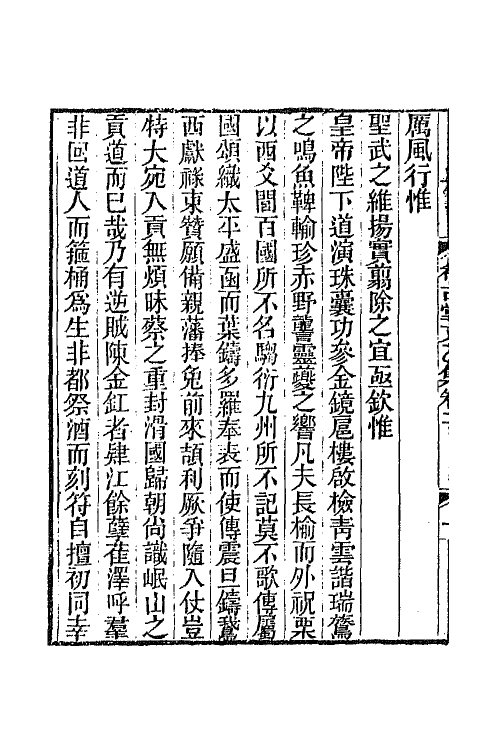 厲風行惟
聖武之維揚實翦除之宜亟欽惟
皇帝陛下道演珠囊功參金鏡扈樓啟檢靑雲諧瑞鶩
之鳴魚鞞輸珍赤野讋靈夔之響凡夫長榆而外祝栗
以西爻閭百國所不名騶衍九州所不記莫不歌傳屬
國頌織太平盛函而葉鑄多羅奉表而使傳震旦鑄鵞
西獻祿東贊願備親藩捧兔前來頡利厥爭隨入仗豈
特大宛入貢無煩昧蔡之重封滑國歸朝尙識岷山之
貢道而已哉乃有逆賊陳金釭者肄江餘孽萑澤呼羣
非回道人而箍桶爲生非都祭酒而刻符自擅初同幸